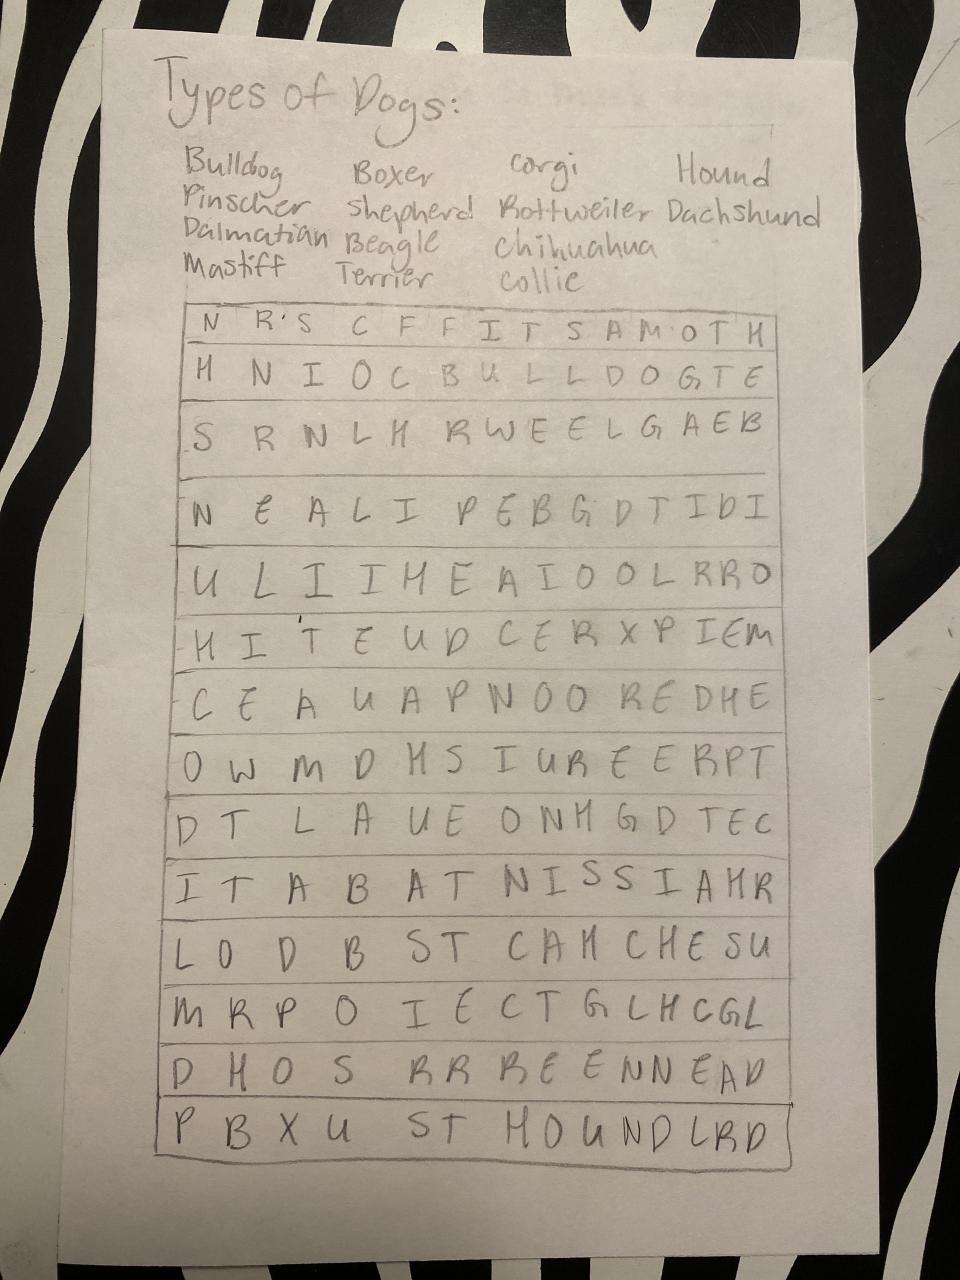 Types of Dogs:
Bulldog Boxer corgi Hound
Pinscher shepherd Rottweiler Dachshund
Dalmatian Beagle Chihuahua
Mastiff Terrier Collie
N R S C F F I T S A M O T H
H N I O C B U L L D O G T E
S R N L H R W E E L G A E B
N E A L I P E B G D T I D I
U L I I H E A I O O L R R O
H I T E U D C E R X P I E M
C E A U A P N O O R E D H E
O W M D H S I U R E E R P T
D T L A U E O N H G D T E C
I T A B A T N I S S I A H R
L O D B S T C A H C H E S U
M R P O I E C T G L H C G L
D H O S R R R E E N N E A D
P B X U S T H O U N D L R D